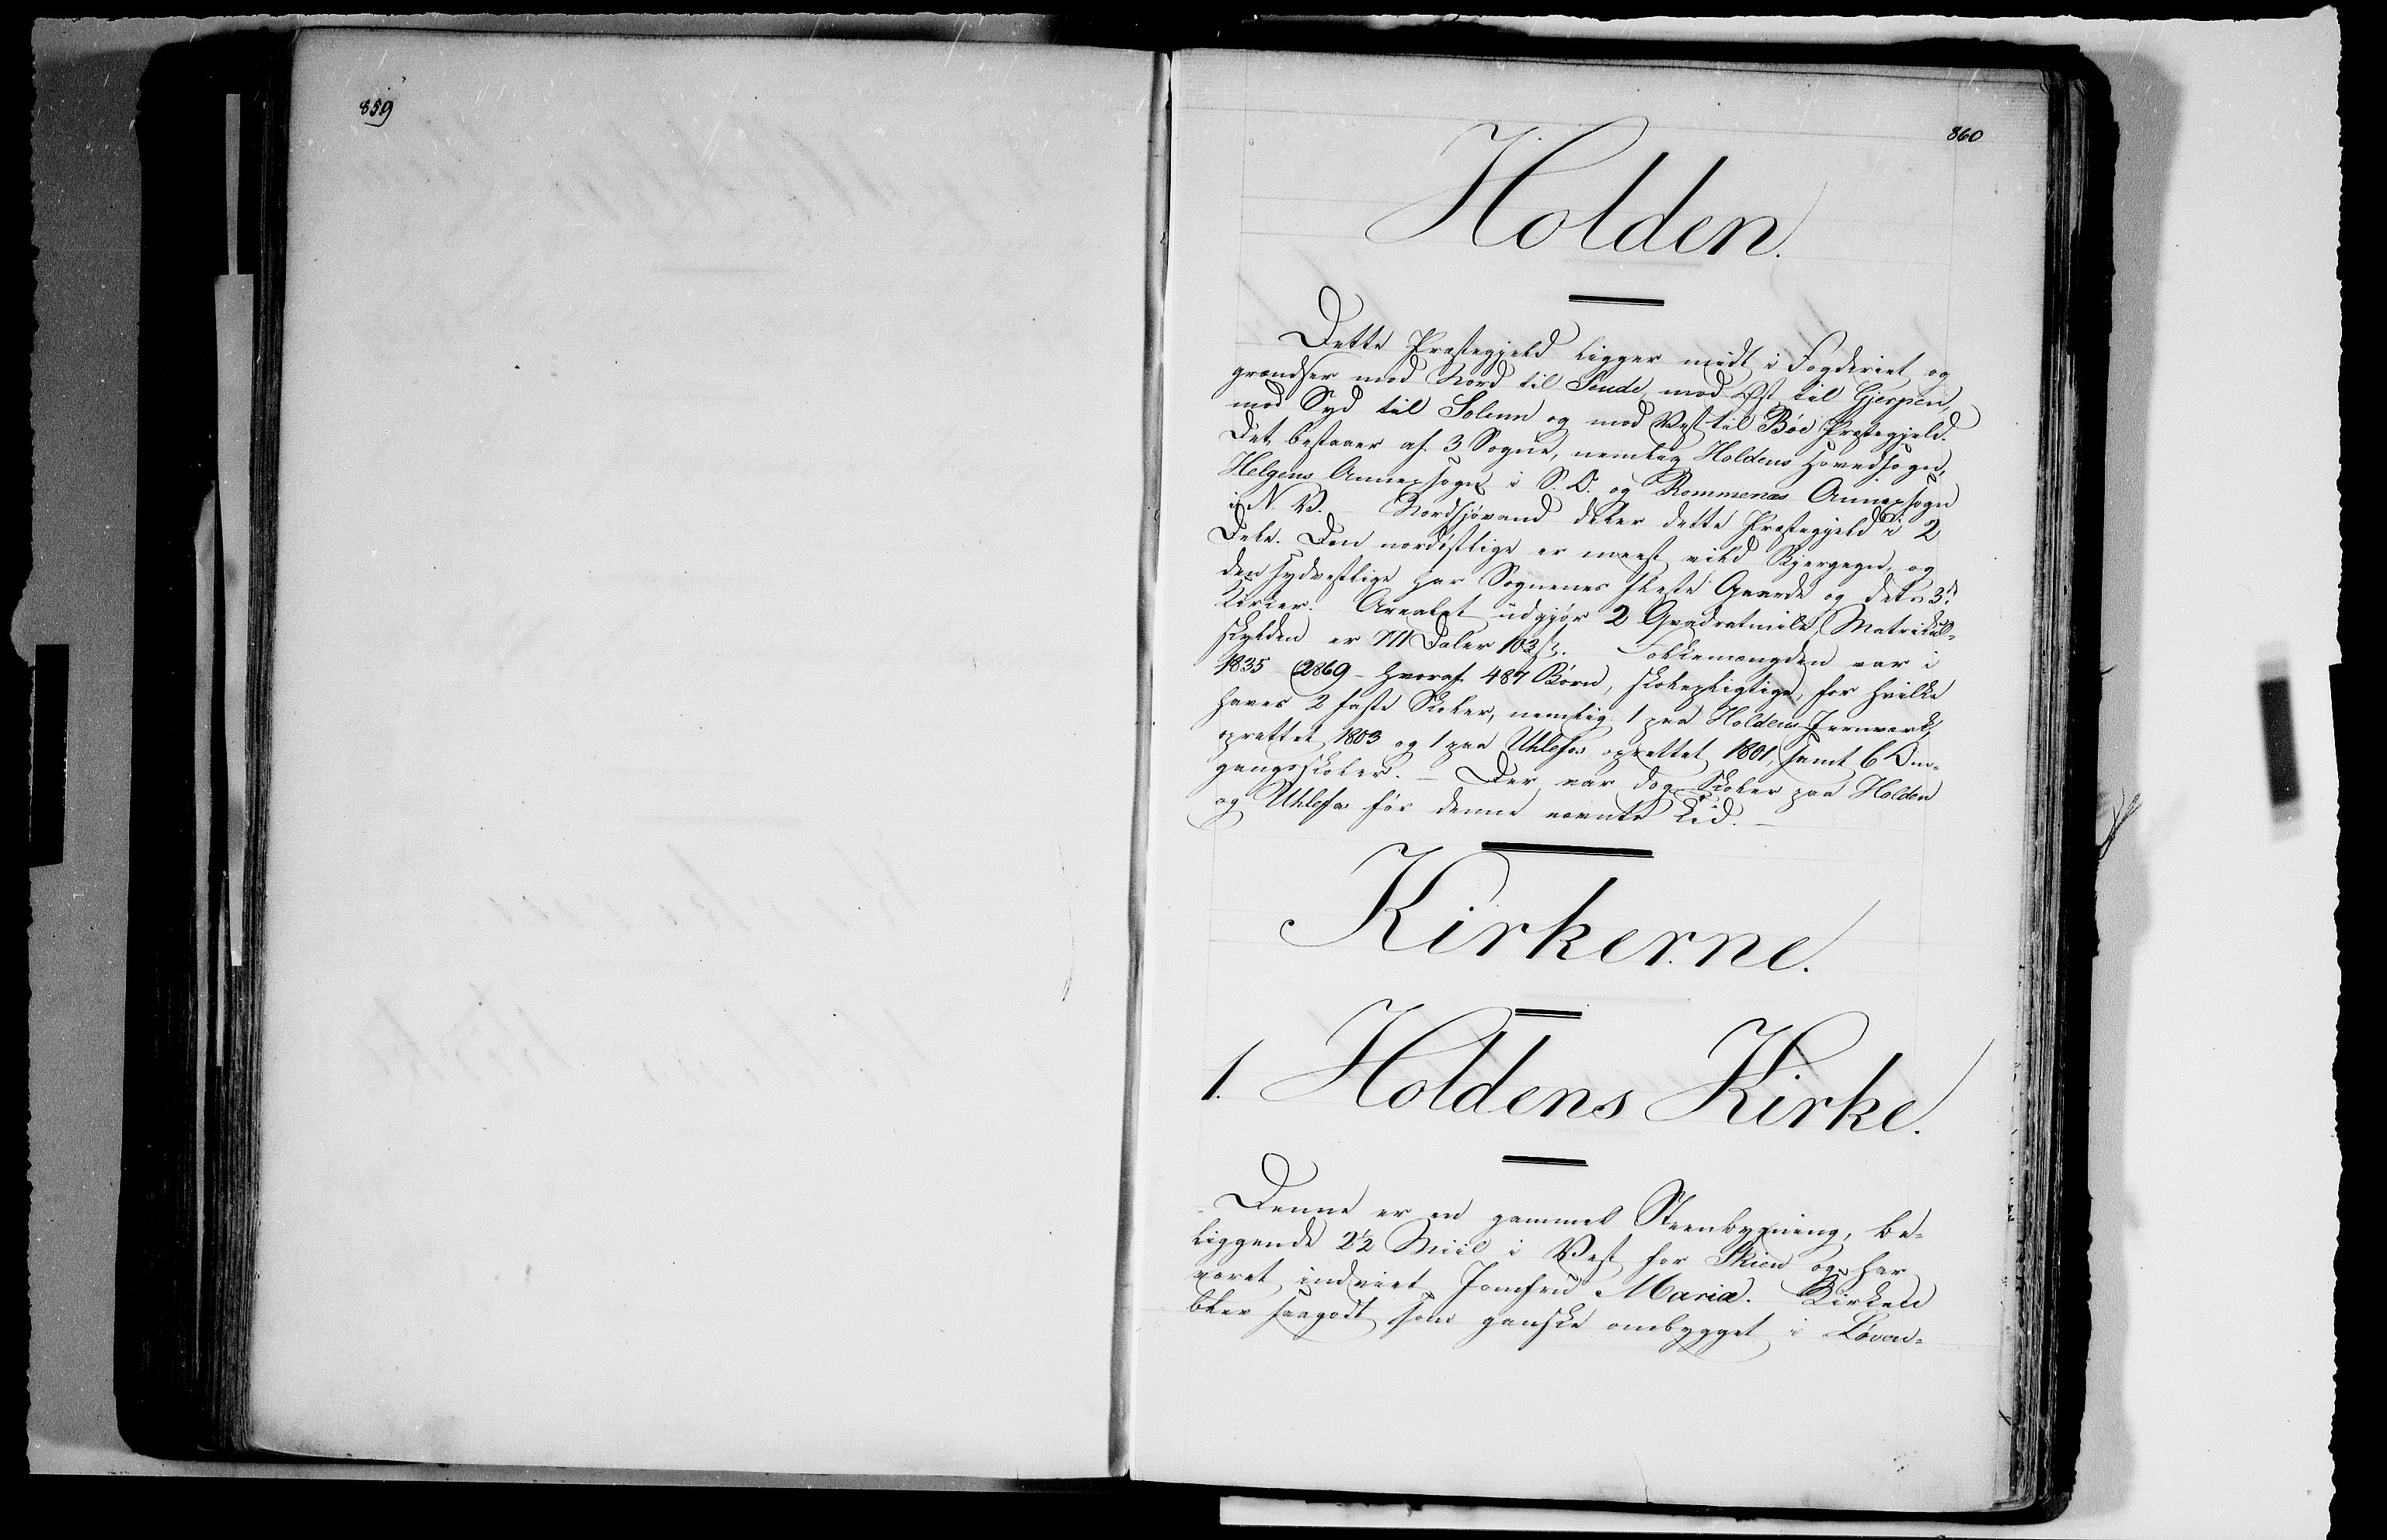 859
860
Holden.
Dette Præstegjeld ligger midt i Fogderiet og
grændser mod Nord til Seude, mod Øst til Gjerpen,
mod Syd til Solum og mod Vest til Bøe Præstegjeld.
Det bestaaer af 3 Sogne, nemlig Holdens Hovedsogn,
Helgens Annexsogn i S. O. og Rommenæs Annexsogn
i N. V. – Nordsjøvand deler dette Præstegjeld i 2
Dele. Den nordøstlige er meest vild Bjergegn, og
den sydvestlige har Sognenes fleste Gaarde og dets 3de
Kirker. Arealet udgjør 2 Qvadratmile, Matrikul=
skylden er 711 Daler 103 ß. Folkemængden var i
1835 – 2869 – hvoraf 487 Børn, skolepligtige, for hvilke
haves 2 faste Skoler, nemlig 1 paa Holdens Jernværk,
oprettet 1803 og 1 paa Uhlefos oprettet 1801, samt 6 Om=
gangsskoler. – Der var dog Skoler paa Holden
og Uhlefos før denne nævnte Tid. –
Kirkerne.
1. Holdens Kirke.
Denne er en gammel Steenbygning, be=
liggende 2½ Miil i Vest for Skien og har
været indviet Jomfru Maria. Kirken
blev saagodt som ganske ombygget i Løven=